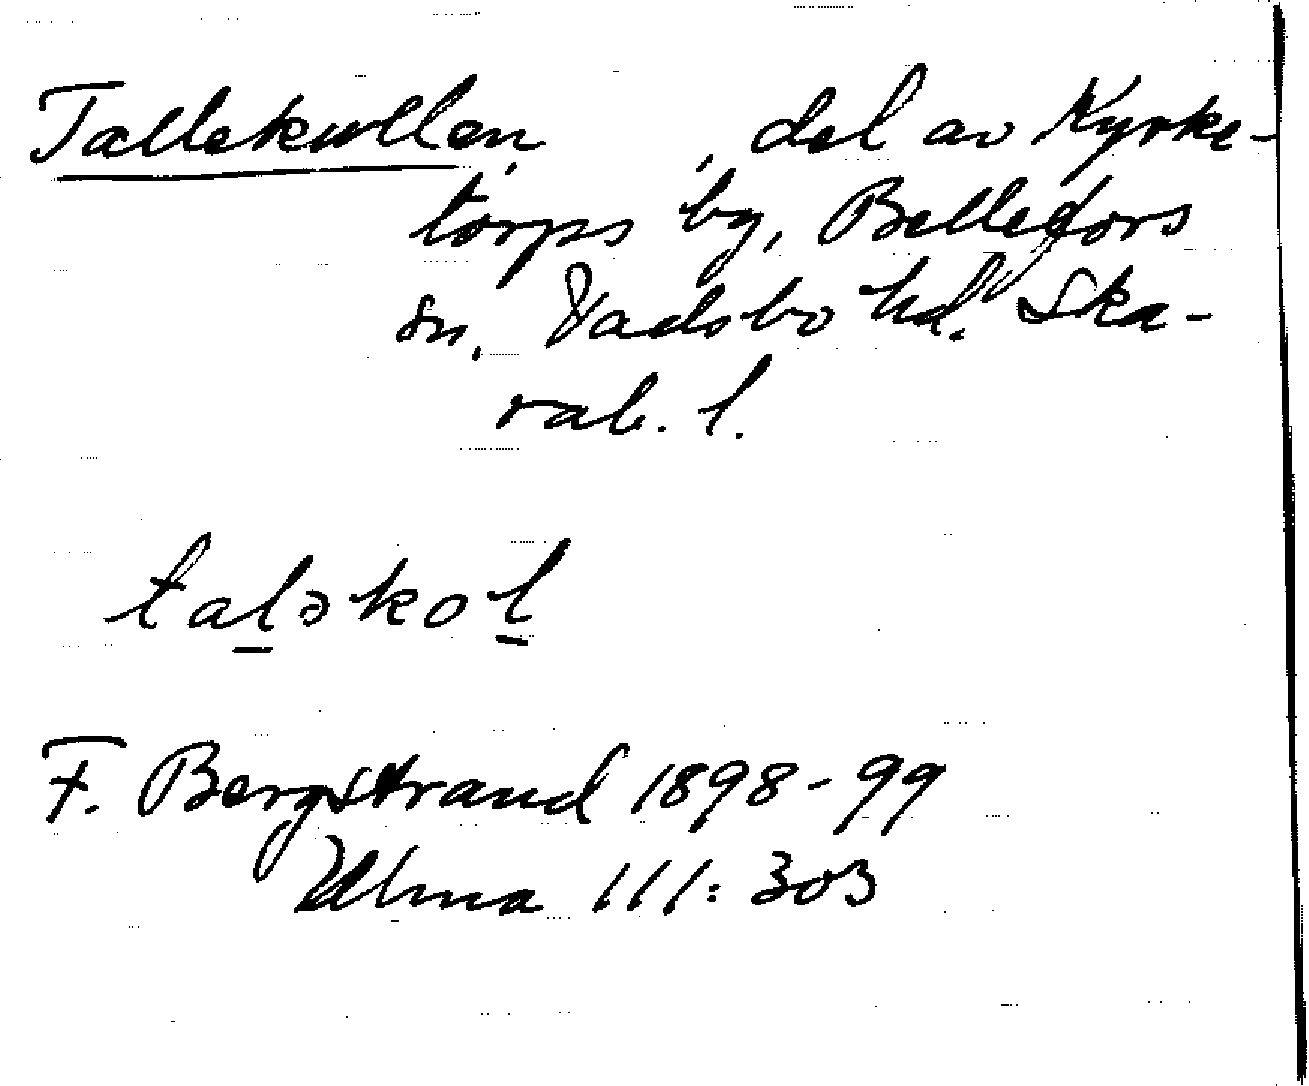 Tallekullen, , del av Kyrke-
torps by, Bellefors
sn, Vadsbo hd. Ska-
rab. l.
taləkol
F. Bergstrand 1898-99
Ulma 111:303